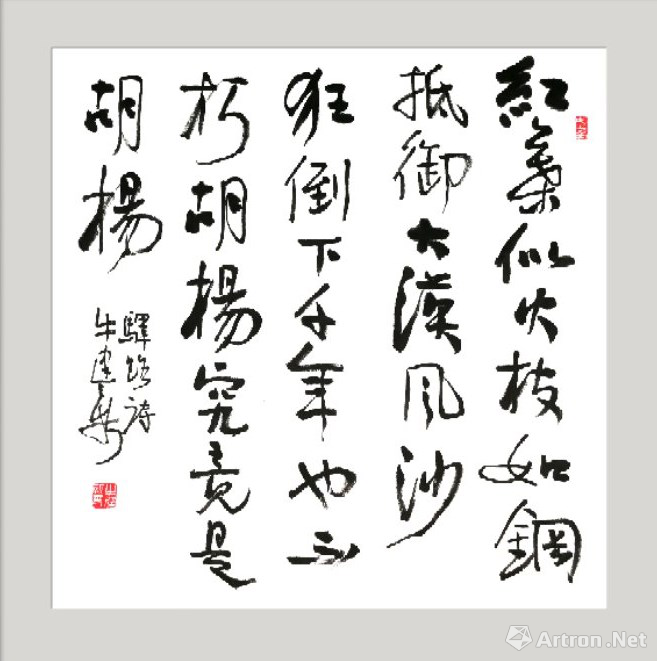 紅葉似火枝如鋼
抵御大漠風沙
狂倒下千年也不
朽胡楊究竟是
胡楊
驛路詩
牛建
Artron.Net